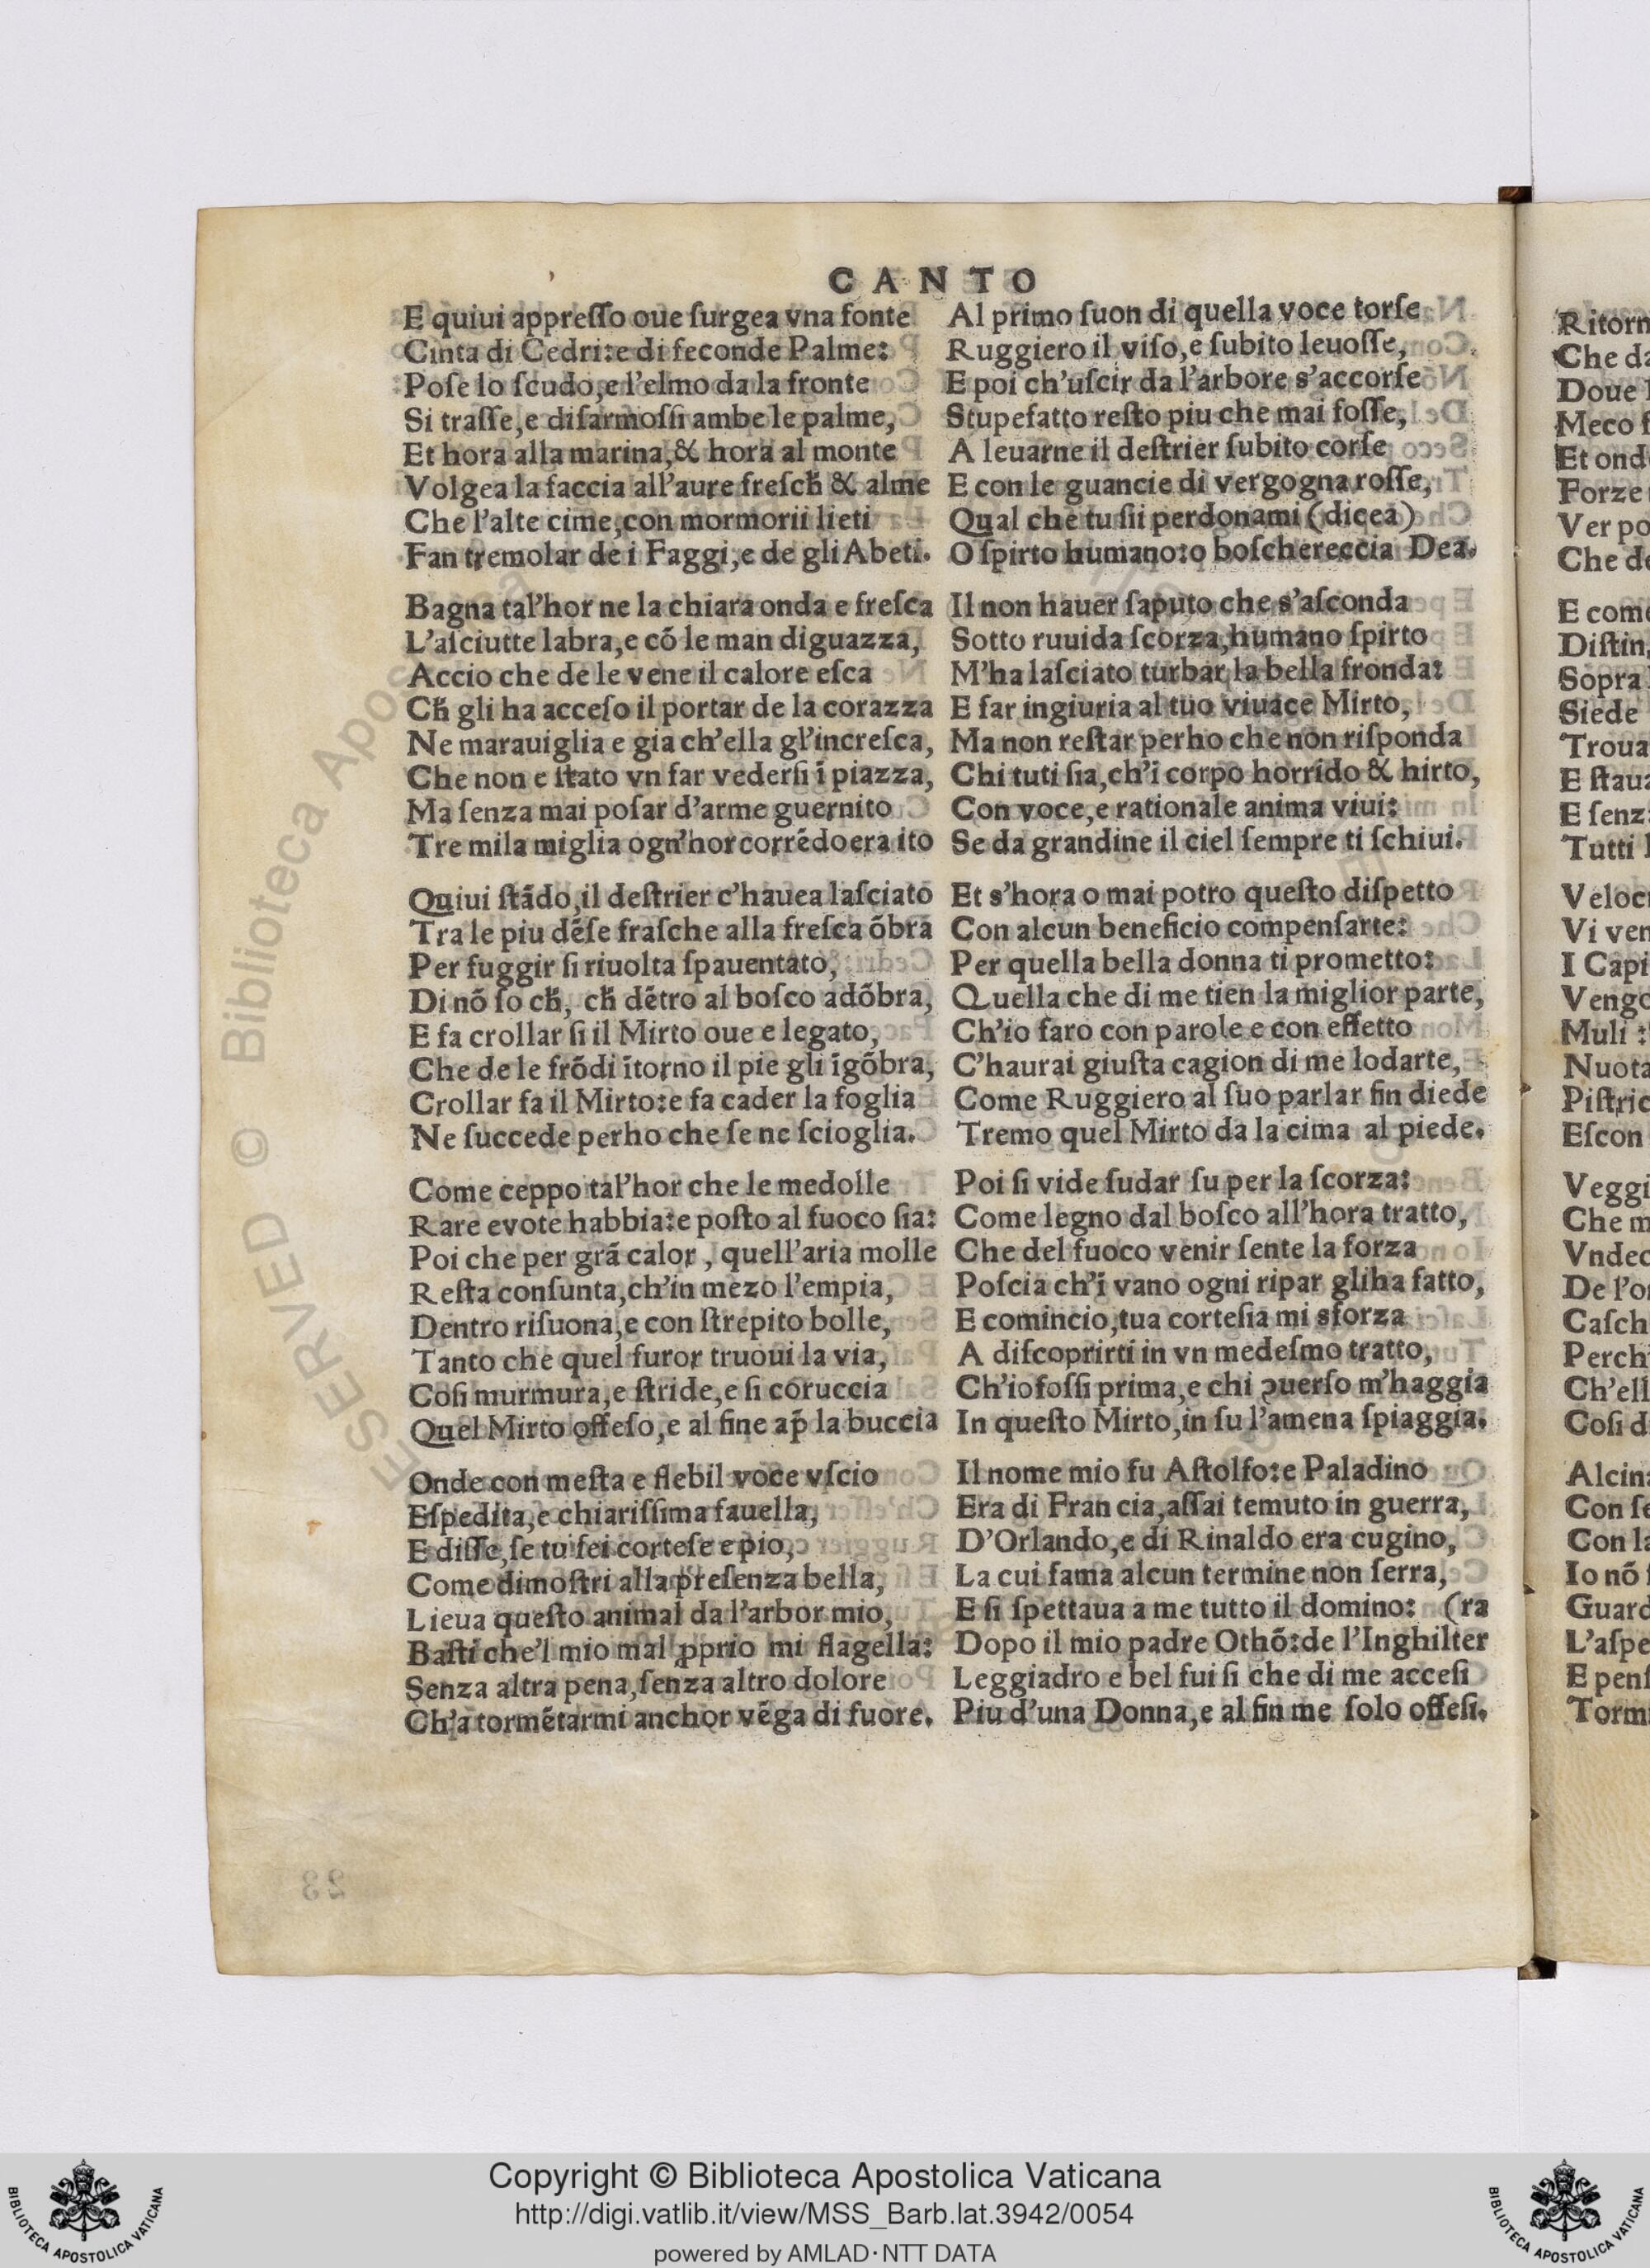 CANTO
E quiui appreſſo oue ſurgea vna fonte
Cinta di Cedri:e di feconde Palme:
Poſe lo ſcudo,e l'elmo da la fronte
Si traſſe,e diſarmoſſi ambe le palme,
Et hora alla marina,& hora al monte
Volgea la faccia all'aure freſcħ & alme
Che l'alte cime,con mormorii lieti
Fan tremolar de i Faggi,e de gli Abeti.
Bagna tal'hor ne la chiara onda e freſca
L'aſciutte labra,e cõ le man diguazza,
Accio che de le vene il calore eſca
Cħ gli ha acceſo il portar de la corazza
Ne marauiglia e gia ch'ella gl'increſca,
Che non e ſtato vn far vederſi ĩ piazza,
Ma ſenza mai poſar d'arme guernito
Tre mila miglia ogn'hor corrẽdo era ito
Quiui ſtãdo,il deſtrier c'hauea laſciato
Tra le piu dẽſe fraſche alla freſca õbra
Per fuggir ſi riuolta ſpauentato,
Di nõ ſo cħ, cħ dẽtro al boſco adõbra,
E fa crollar ſi il Mirto oue e legato,
Che de le frõdi ĩtorno il pie gli ĩgõbra,
Crollar fa il Mirto:e fa cader la foglia
Ne ſuccede perho che ſe ne ſcioglia.
Come ceppo tal'hor che le medolle
Rare e vote habbia:e poſto al fuoco ſia:
Poi che per grã calor , quell'aria molle
Reſta conſunta,ch'in mezo l'empia,
Dentro riſuona,e con ſtrepito bolle,
Tanto che quel furor truoui la via,
Coſi murmura,e ſtride,e ſi coruccia
Quel Mirto offeſo,e al fine ap̃ la buccia
Onde con meſta e flebil voce vſcio
Eſpedita,e chiariſſima fauella,
E diſſe,ſe tu ſei corteſe e pio,
Come dimoſtri alla preſenza bella,
Lieua queſto animal da l'arbor mio,
Baſti che'l mio mal ꝓprio mi flagella:
Senza altra pena,ſenza altro dolore
Ch'a tormẽtarmi anchor vẽga di fuore.
Al primo ſuon di quella voce torſe
Ruggiero il viſo,e ſubito leuoſſe,
E poi ch'uſcir da l'arbore s'accorſe
Stupefatto reſto piu che mai foſſe,
A leuarne il deſtrier ſubito corſe
E con le guancie di vergogna roſſe,
Qual che tu ſii perdonami (dicea)
O ſpirto humano:o boſchereccia Dea.
Il non hauer ſaputo che s'aſconda
Sotto ruuida ſcorza,humano ſpirto
M'ha laſciato turbar la bella fronda:
E far ingiuria al tuo viuace Mirto,
Ma non reſtar perho che non riſponda
Chi tu ti ſia,ch'ĩ corpo horrido & hirto,
Con voce,e rationale anima viui:
Se da grandine il ciel ſempre ti ſchiui.
Et s'hora o mai potro queſto diſpetto
Con alcun beneficio compenſarte:
Per quella bella donna ti prometto:
Quella che di me tien la miglior parte,
Ch'io faro con parole e con effetto
C'haurai giuſta cagion di me lodarte,
Come Ruggiero al ſuo parlar fin diede
Tremo quel Mirto da la cima al piede.
Poi ſi vide ſudar ſu per la ſcorza:
Come legno dal boſco all'hora tratto,
Che del fuoco venir ſente la forza
Poſcia ch'ĩ vano ogni ripar gli ha fatto,
E comincio,tua corteſia mi sforza
A diſcoprirti in vn medeſmo tratto,
Ch'io foſſi prima,e chi ꝯuerſo m'haggia
In queſto Mirto,in ſu l'amena ſpiaggia.
Il nome mio fu Aſtolfo:e Paladino
Era di Fran cia,aſſai temuto in guerra,
D'Orlando,e di Rinaldo era cugino,
La cui fama alcun termine non ſerra,
E ſi ſpettaua a me tutto il domino: (ra
Dopo il mio padre Othõ:de l'Inghilter
Leggiadro e bel fui ſi che di me acceſi
Piu d'una Donna,e al fin me ſolo offeſi.
Ritorn
Che da
Doue
Meco
Et ond
Forze
Ver po
Che de
E come
Diſtin
Sopra
Siede
Troua
E ſtaua
E ſenz
Tutti
Veloc
Vi ven
I Capi
Vengo
Muli :
Nuota
Piſtric
Eſcon
Veggi
Che m
Vndec
De l'o
Caſch
Perch
Ch'ell
Coſi d
Alcin
Con ſe
Con la
Io nõ
Guard
L'aſpe
E penſ
Torm
23
ESERVED © Biblioteca Apos
Copyright © Biblioteca Apostolica Vaticana
http://digi.vatlib.it/view/MSS_Barb.lat.3942/0054
powered by AMLAD·NTT DATA
BIBLIOTECA APOSTOLICA VATICANA
BIBLIOTECA APOSTOLICA VATICANA